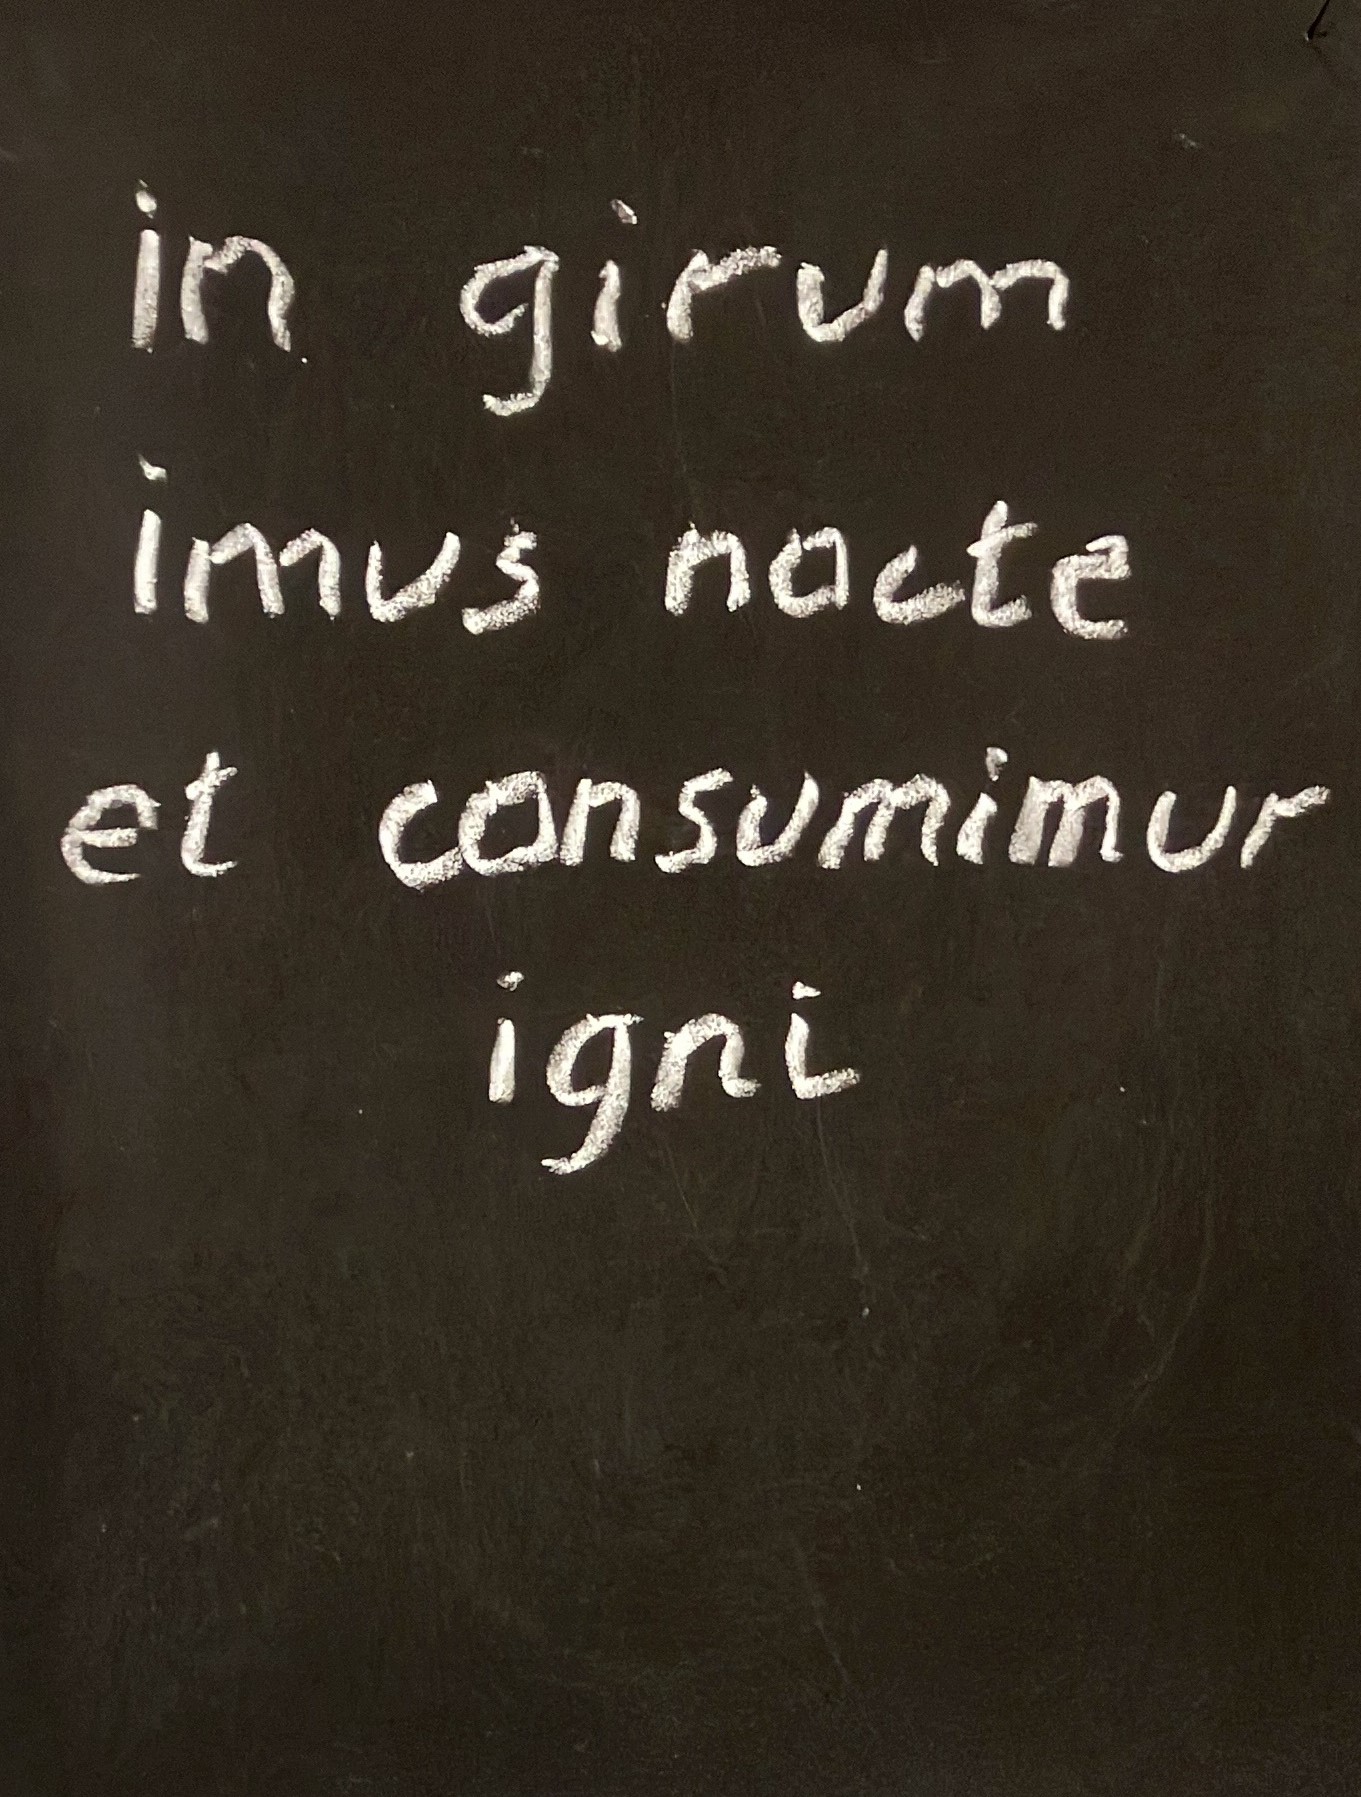 in girum
imus nocte
et consumimur
igni